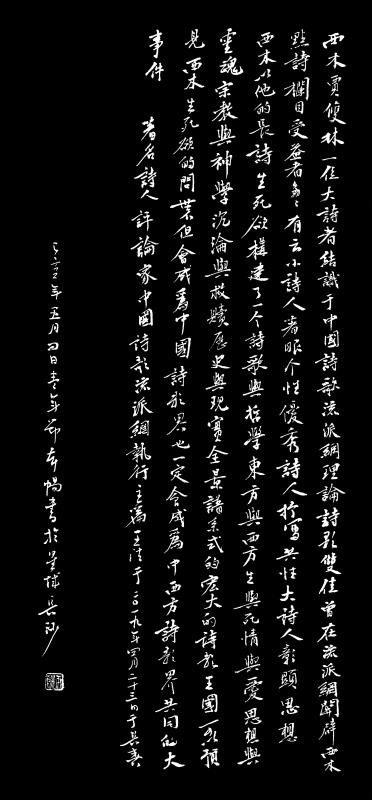 西木 賈雙林 一位大詩者 結識于中國詩歌流派網 理論詩歌雙佳 曾在流派網開辟西木
點詩欄目 受益者多 有云 小詩人著眼个性 優秀詩人抒寫共性 大詩人彰顯思想
西木以他的長詩生死欲構建了个詩歌與哲學 東方與西方 生與死 情與愛 思想與
靈魂 宗教與神學 沉淪與救贖 歷史與現實 全景譜系式的宏大的詩歌王國 可以預
見 西木生死欲的問世 不但會成為中國詩歌界 也一定會成為中西方詩歌界共同的大
事件
著名詩人評論家 中國詩歌流派網執行主編 王法 于二〇一九年四月二十三日于長春
年五月四日青年節 書於星城長沙